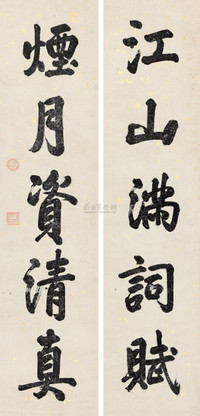 江山滿詞賦
煙月資清真